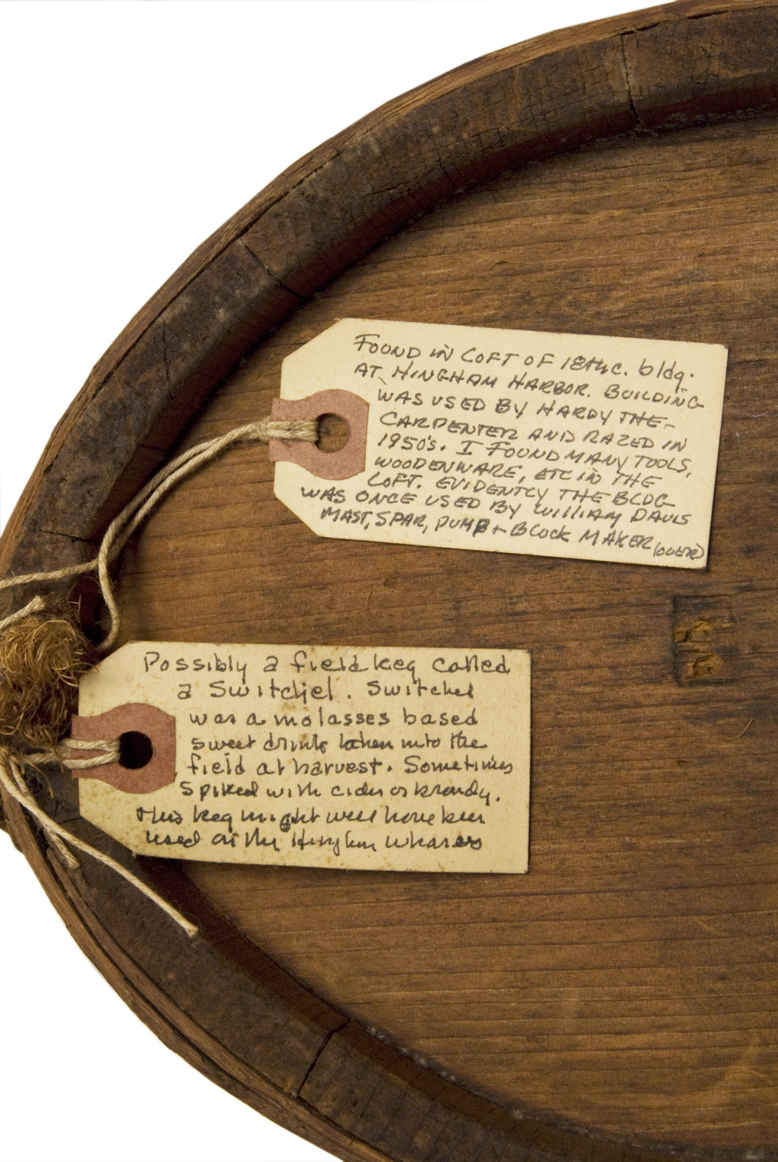 FOUND IN LOFT OF 18th c. bldg.
AT HINGHAM HARBOR. BUILDING
WAS USED BY HARDY THE
CARPENTER AND RAZED IN
1950's. I FOUND MANY TOOLS,
WOODENWARE, ETC IN THE
LOFT. EVIDENTLY THE BLDG
WAS ONCE USED BY WILLIAM DAVIS
MAST, SPAR, PUMP + BLOCK MAKER (OVER)
Possibly a field keg called
a Switchel. Switchel
was a molasses based
sweet drink taken into the
field at harvest. Sometimes
spiked with cider or brandy.
This keg might well have been
used on the Hingham wharves